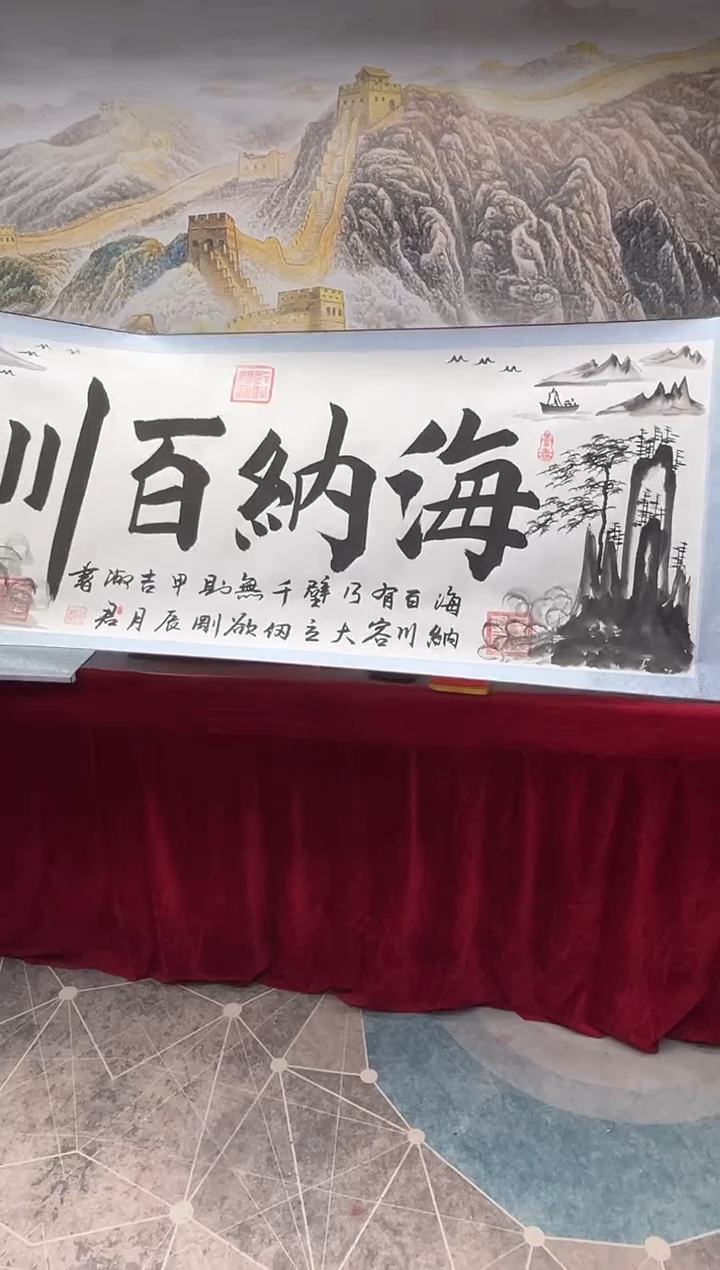 海納百川
海納
百川
有容
乃大
壁立
千仞
無欲
則剛
甲辰
吉月
淑君
書